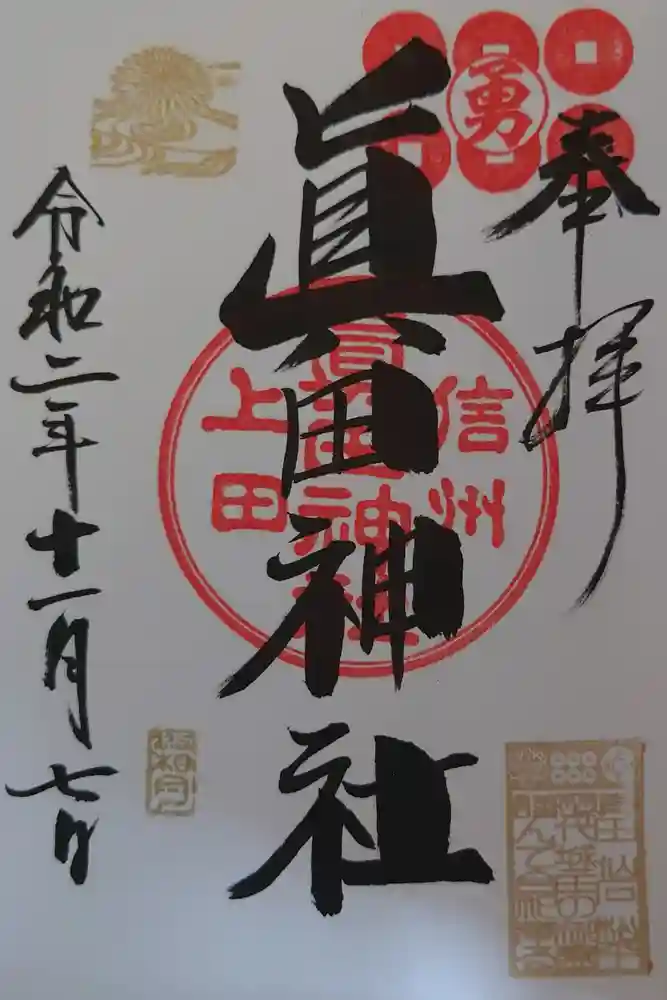 奉拝
勇
眞田神社
信州
眞田神社
上田
令和二年十一月七日